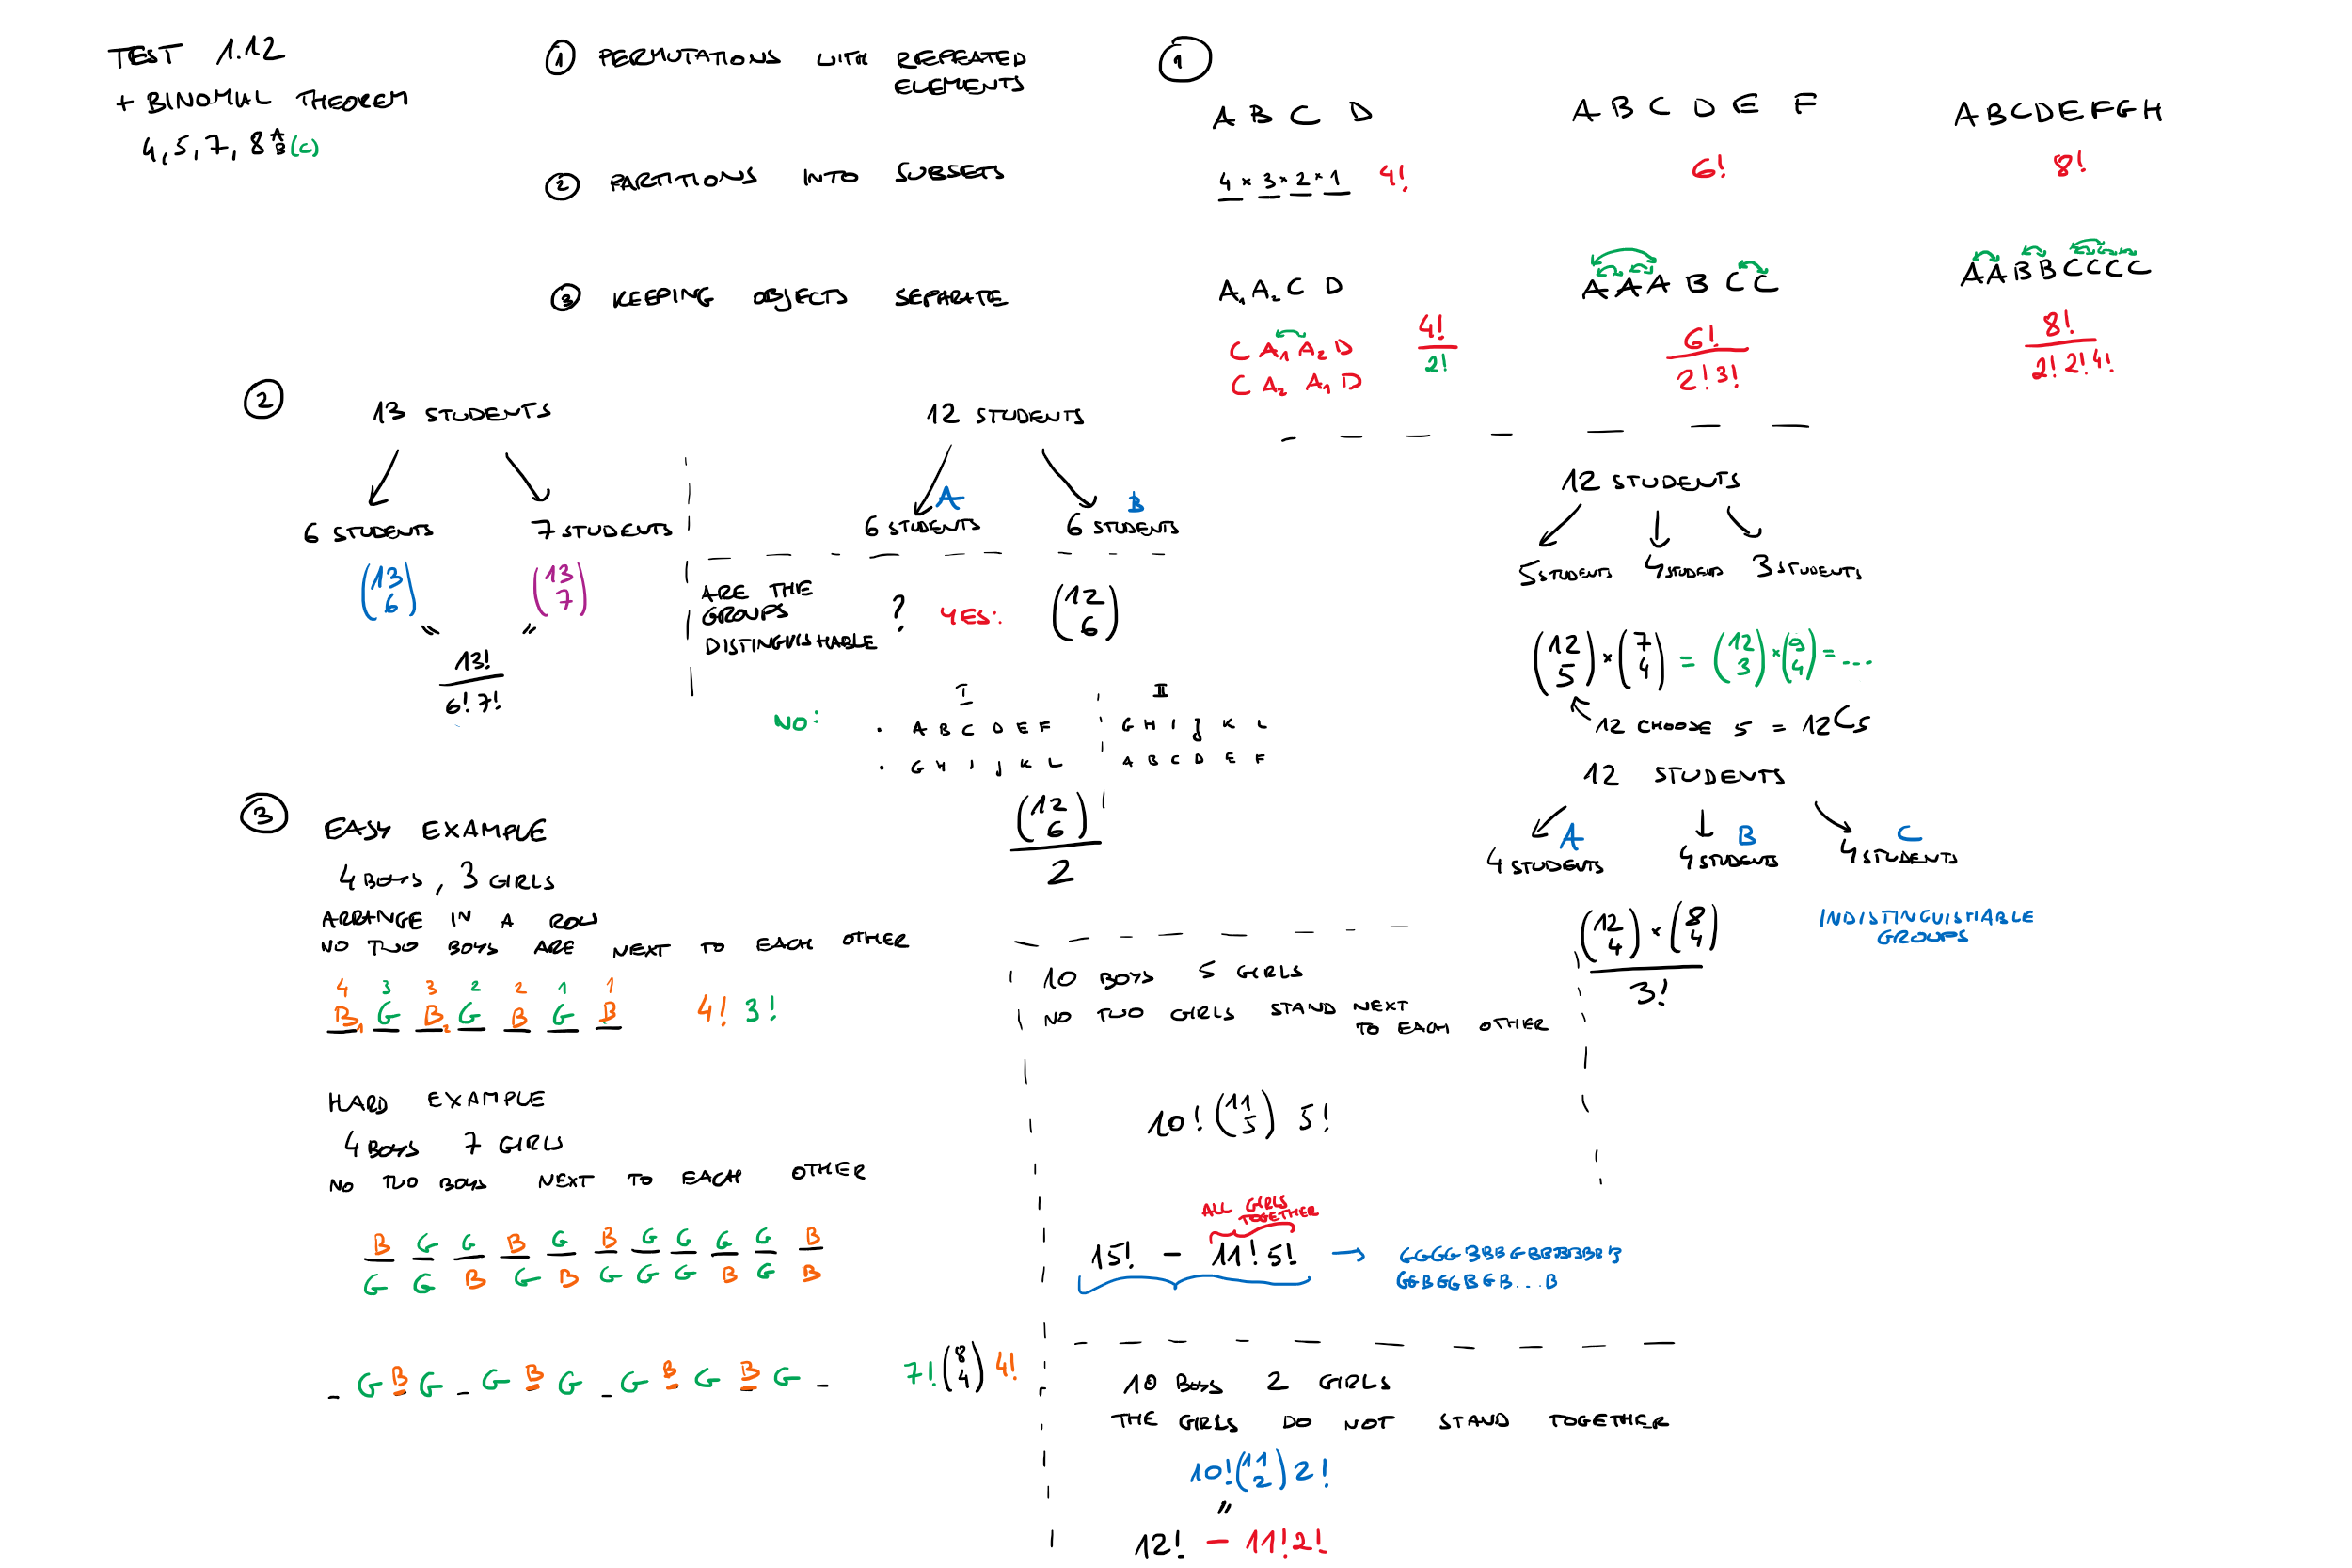 TEST 1.12
+ BINOMIAL THEOREM
4, 5, 7, 8 A B (C)
① PERMUTATIONS WITH REPEATED
ELEMENTS
② PARTITIONS INTO SUBSETS
③ KEEPING OBJECTS SEPARATE
①
A B C D
4 × 3 × 2 × 1 4!
A B C D E F
6!
A B C D E F G H
8!
A₁ A₂ C D
C A₁ A₂ D
C A₂ A₁ D
4!
2!
A A A B C C
6!
2! 3!
A A B B C C C C
8!
2! 2! 4!
②
13 STUDENTS
6 STUDENTS 7 STUDENTS
(13 6) (13 7)
" "
13!
6! 7!
12 STUDENTS
A B
6 STUDENTS 6 STUDENTS
ARE THE
GROUPS
DISTINGUISHABLE ? YES: (12 6)
I II
NO: • A B C D E F G H I J K L
• G H I J K L A B C D E F
(12 6)
2
12 STUDENTS
5 STUDENTS 4 STUDENTS 3 STUDENTS
(12 5) × (7 4) = (12 3) × (9 4) = ...
12 CHOOSE 5 = 12C5
12 STUDENTS
A B C
4 STUDENTS 4 STUDENTS 4 STUDENTS
(12 4) × (8 4)
3!
INDISTINGUISHABLE
GROUPS
③
EASY EXAMPLE
4 BOYS, 3 GIRLS
ARRANGE IN A ROW
NO TWO BOYS ARE NEXT TO EACH OTHER
4 3 3 2 2 1 1
B₁ G B₂ G B G B 4! 3!
HARD EXAMPLE
4 BOYS 7 GIRLS
NO TWO BOYS NEXT TO EACH OTHER
B G G B G B G G G G B
G G B G B G G G B G B
_ G B G _ G B G _ G B G B G _ 7! (8 4) 4!
10 BOYS 5 GIRLS
NO TWO GIRLS STAND NEXT
TO EACH OTHER
10! (11 5) 5!
ALL GIRLS
TOGETHER
15! - 11! 5! →
GGBGGBGB...B
10 BOYS 2 GIRLS
THE GIRLS DO NOT STAND TOGETHER
10! (11 2) 2!
"
12! - 11! 2!